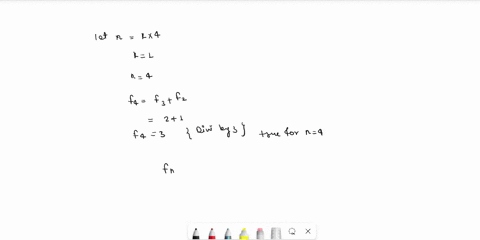 let n = k×4
k=1
n=4
f4 = f3 + f2
= 2+1
f4 = 3 { Divi by 3 } true for n=4
fn